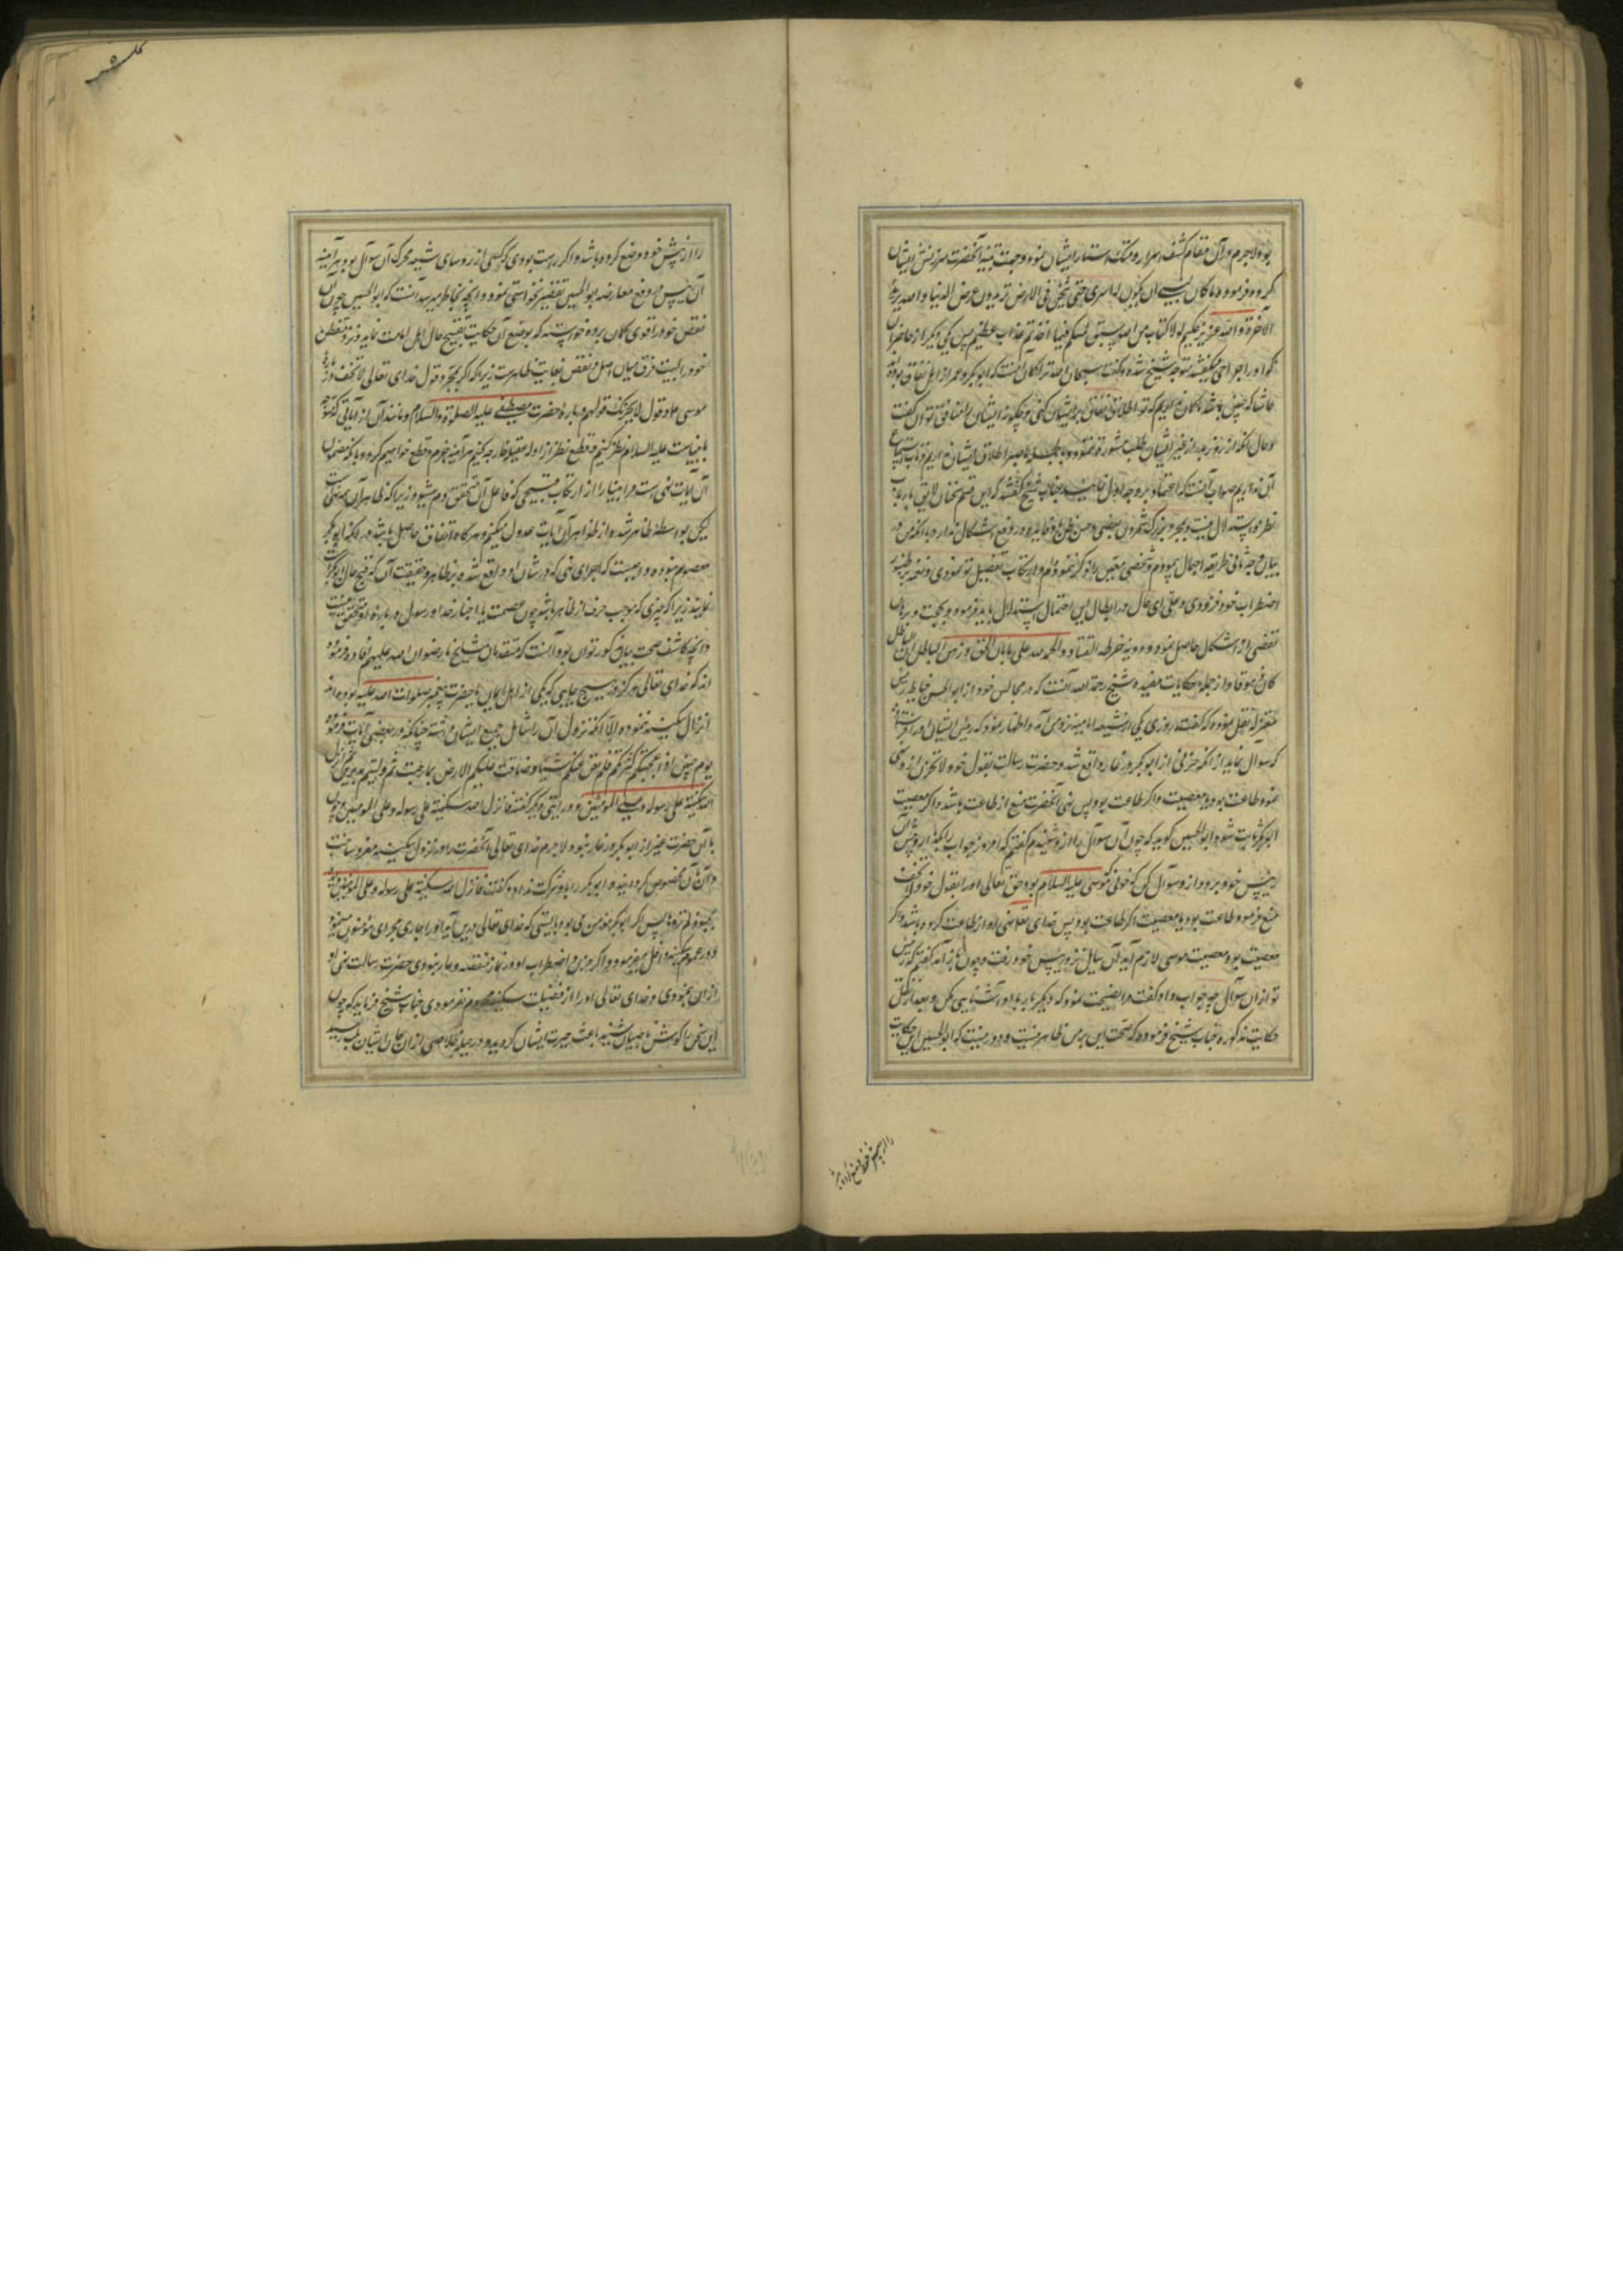 بود لاجرم در آن مقام کشف اسرار و هتک استار ایشان نموده و جهت تنبیه آنحضرت سرزنش ایشان
کرده و فرموده ما کان لنبی ان یکون له اسری حتی یثخن فی الارض تریدون عرض الدنیا و الله یرید
الآخرة و الله عزیز حکیم لولا کتاب من الله سبق لمسکم فیما اخذتم عذاب عظیم پس یکی دیگر از حاضران
که او را جراحی میگفتند متوجه شیخ شده و گفت سبحان الله ترا گمان آنست که ابوبکر و عمر از اهل نفاق بودند
حاشا که چنین باشد ما گمان نداریم که تو اطلاق نفاق بر ایشان کنی و چگونه ایشان را منافق توان گفت
و حال آنکه از روز بدر از غیر ایشان طلب مشورة ننمود
این نداریم صواب آنست که اعتماد بر وجه اول نمایند و جناب شیخ گفتند که این قسم سخنان لایق ارباب
نظر و استدلال نیست و بمجرد بزرگ شمردن بعضی و حسن ظن با و فایده در دفع اشکال ندارد با آنکه من در
بیان وجه ثانی طریقه اجمال پیمودم و شخصی معین را ذکر ننمودم و ارتکاب تفصیل تو نمودی
اضطراب خود فزودی و علی ای حال در ابطال این احتمال استدلال باید فرمود و بحجت و برهان
تفصی از اشکال حاصل نمود و دونه خرط القتاد و الحمد لله علی ما بان الحق و زهق الباطل ان الباطل
کان زهوقا و از جمله حکایات مفیده شیخ رحمه الله آنست که در مجالس خود از ابوالحسن خیاط رئیس
معتزله نقل نموده که گفت روزی یکی از شیعه امامیه نزد من آمد و اظهار نمود که رئیس ایشان او را فرستاده
که سؤال نماید از آنکه حزنی از ابوبکر در غار واقع شد و حضرت رسالت بقول خود لا تحزن از و نهی
نمود طاعت بود یا معصیت و اگر طاعت بود پس نهی آنحضرت منع از طاعت باشد و اگر معصیت
ابوبکر ثابت شود ابوالحسین گوید که چون آن سؤال را از و شنیدم گفتم که امروز جواب را بگذار و پیش آن
رئیس خود برو و از و سؤال کن که خوفی که موسی علیه السلام بود و حق تعالی او را بقول خود لا تخف
منع فرمود طاعت بود یا معصیت اگر طاعت بود پس خدای تعالی نهی او از طاعت کرده باشد و اگر
معصیت بود معصیت موسی لازم آید آن سایل نزد رئیس خود رفت و چون باز آمد گفتم که رئیس
تو از ان سؤال چه جواب داد گفت مرا نصیحت نمود که دیگر بار با او آشنایی مکن و بعد از نقل
حکایت مذکوره جناب شیخ فرموده که صحت این بر من ظاهر نیست و دور نیست که ابوالحسین این حکایت
را از پیش خود وضع کرده
را از پیش خود وضع کرده باشد و اگر راست بودی که کسی از رؤسای شیعه محرک آن سؤال بود هر آینه
آن رئیس در دفع معارضه ابوالحسین تقصیر نخواستی نمود و آنچه بخاطر میرسد آنست که ابوالحسین چون آن
نقض خود را قوی گمان برده خواسته که بوضع آن حکایت تقبیح حال اهل امامت نماید
خود و البته فرق میان اصل و نقض بغایت ظاهرست زیرا که اگر بمجرد قول خدای تعالی لا تخف در باره
موسی ع و قول لا یحزنک قولهم در باره حضرت مصطفی علیه الصلوة و السلام و مانند آن از آیاتی که متوجه
بانبیاست علیه السلام نظر کنیم و قطع نظر از ادله عقلیه خارجه کنیم هر آینه جزم و قطع خواهیم کرد و بآنکه مضمون
آن آیات نهی است مر انبیا را از ارتکاب قبیحی که فاعل آن مستحق ذم میشود زیرا که ظاهر آن
لیکن بواسطه ظاهر شده از ظواهر آن آیات عدول میکنیم و هر گاه اتفاق حاصل باشد در آنکه ابوبکر
معصوم نبوده واجبست که اجرای نهی که در شان او واقع شده بر ظاهر و حقیقت آن که قبح حال ابوبکرست
نمایند زیرا که چیزی که موجب صرف از ظاهر باشد چون عصمت یا اخبار خدا و رسول در باره او متحقق نیست
و آنچه کاشف صحت بیان مذکور تواند بود آنست که متقدمان مشایخ ما رضوان الله علیهم افاده فرموده
اند که خدای تعالی هرگز در هیچ جایی که یکی از اهل ایمان با حضرت پیغمبر صلوات الله علیه بوده اند
انزال سکینه ننموده و الا آنکه نزول آن را شامل جمیع ایشان داشته چنانکه در بعضی آیات فرموده
یوم حنین اذ اعجبتکم کثرتکم فلم تغن عنکم شیئا و ضاقت علیکم الارض بما رحبت ثم ولیتم مدبرین ثم انزل
الله سکینته علی رسوله و علی المؤمنین و در آیتی دیگر گفته فانزل الله سکینته علی رسوله و علی المؤمنین و چون
با آن حضرت غیر از ابوبکر در غار نبود لاجرم خدای تعالی آنحضرت را در نزول سکینه مفرد ساخت
و آن را بآن مخصوص گردانید و ابوبکر را با او شرکت نداد و گفت فانزل الله سکینته علی
بجنود لم تروها پس اگر ابوبکر مؤمن می بود بایستی که خدای تعالی درین آیه او را جاری مجرای مؤمنون مینمود
و در عموم سکینه داخل میفرمود و اگر حزن و اضطراب او در غار منقصه و عار نبودی حضرت رسالت نهی او
از ان ننمودی و خدای تعالی او را از فضیلت سکینه محروم نفرمودی جناب شیخ فرماید که چون
این سخن را گوش ناصبیان شنید باعث حیرت ایشان گردیده و در حیله خلاصی از ان جان ایشان بلب رسید